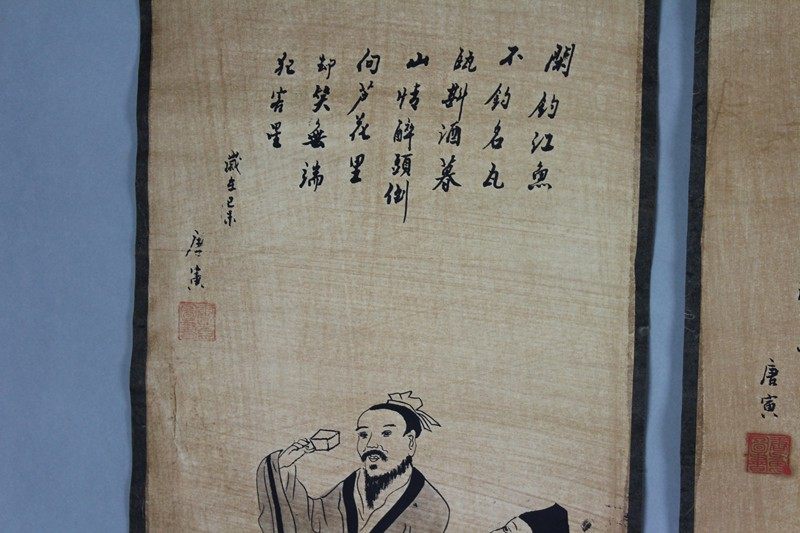 閑钓江魚
不釣名瓦
瓯斟酒暮
山情醉頭倒
向芦花里
却笑無端
犯客星
歲在己未
唐寅
唐寅